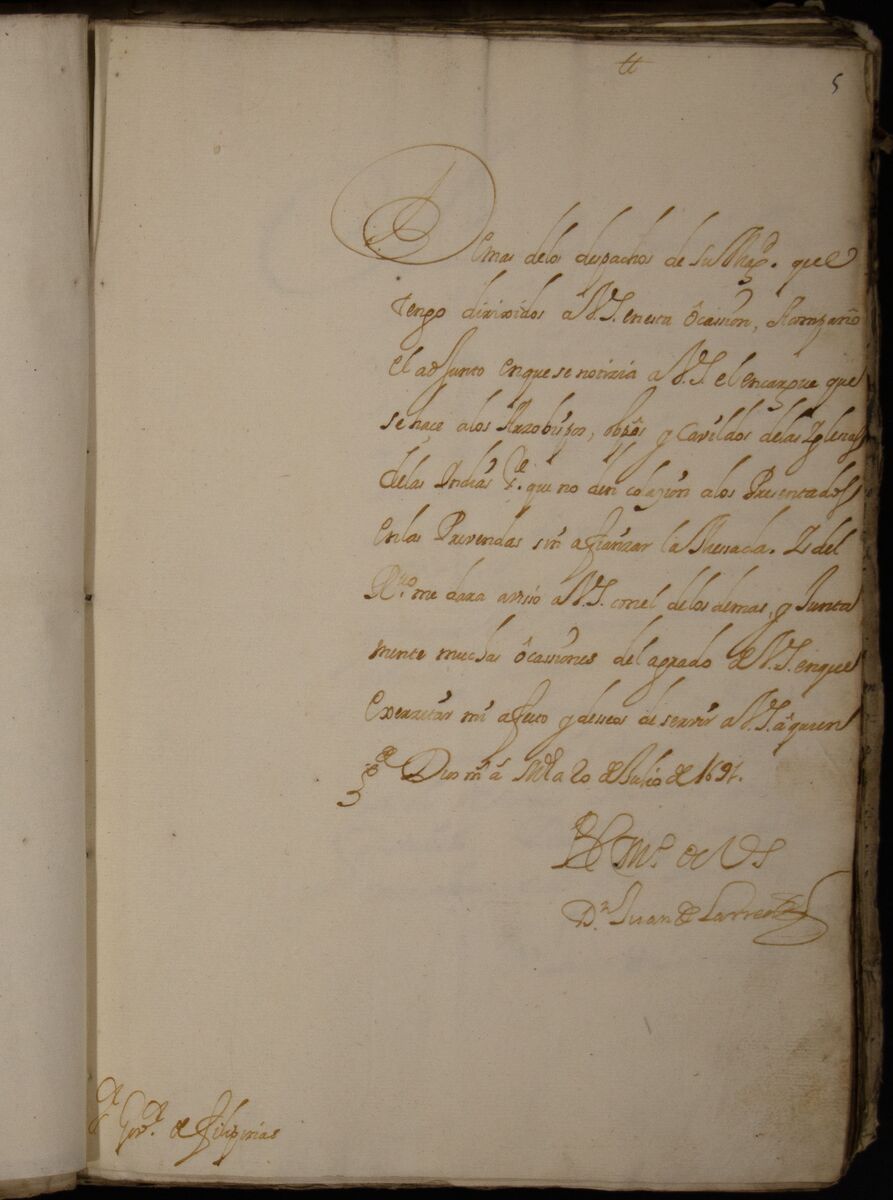 tt
5
Demas delos despachos de su Magd. que
tengo dirixidos a V.S. en esta ôcassion, Acompaño
el adJunto en que se notizia a V.S. el encargue que
se hace alos Arzobispos, obpõs y Cavildos delas Yglesias
delas Indias que no den colazion alos Presentados
en las Prevendas sin afianzar la Messada. Y del
Rvo. me dara aviso V.S. con el delos demas, y Junta
mente muchas ôcassiones del agrado de V.S. en que
Exerzitar mi afecto y deseos de servir a V.S. â quien
gde Dios ms as Md a 20 de Julio de 1691.
BLM. de VS
Dn. Juan de Larrea
Sr Govr. de Filipinas